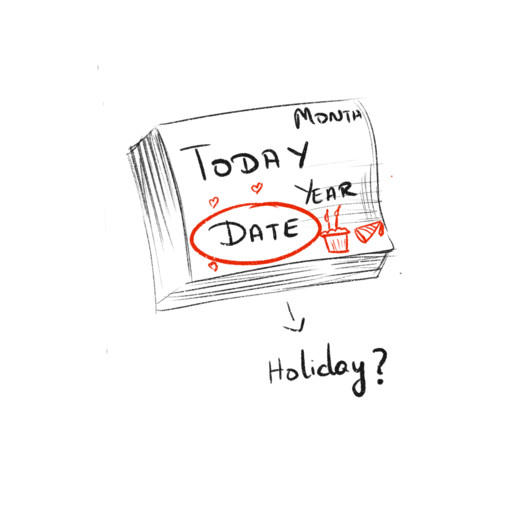 MONTH
TODAY
YEAR
DATE
Holiday?